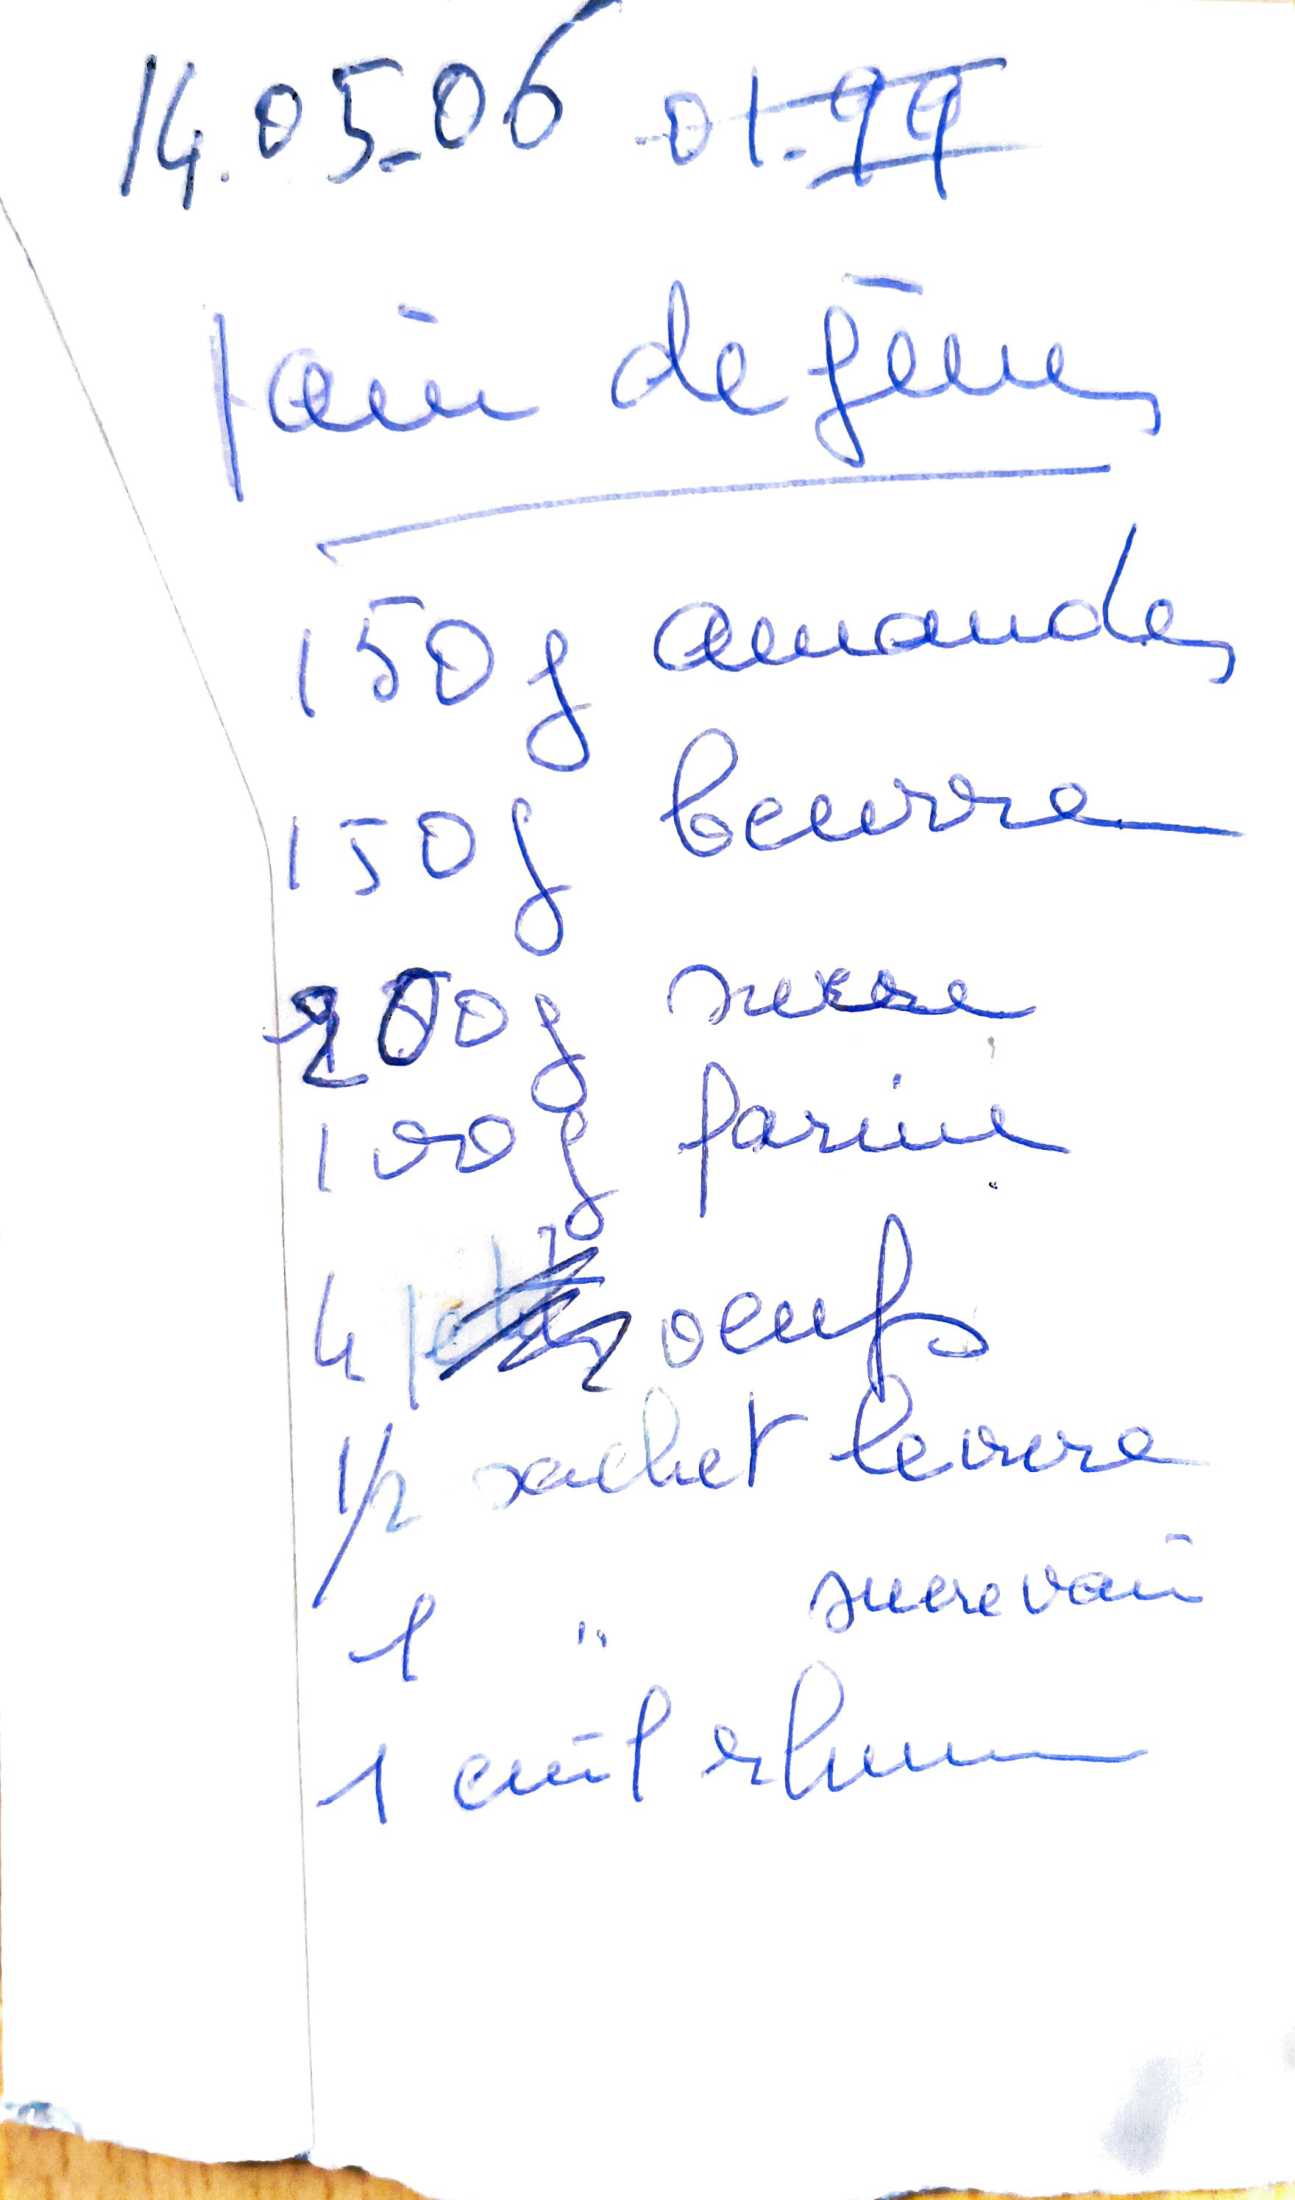 14.05.06 01.99
pain de gênes
150 g amandes
150 g beurre
200 g sucre
100 g farine
4 oeufs
1/2 sachet levure
1 " sucre van
1 cuil rhum